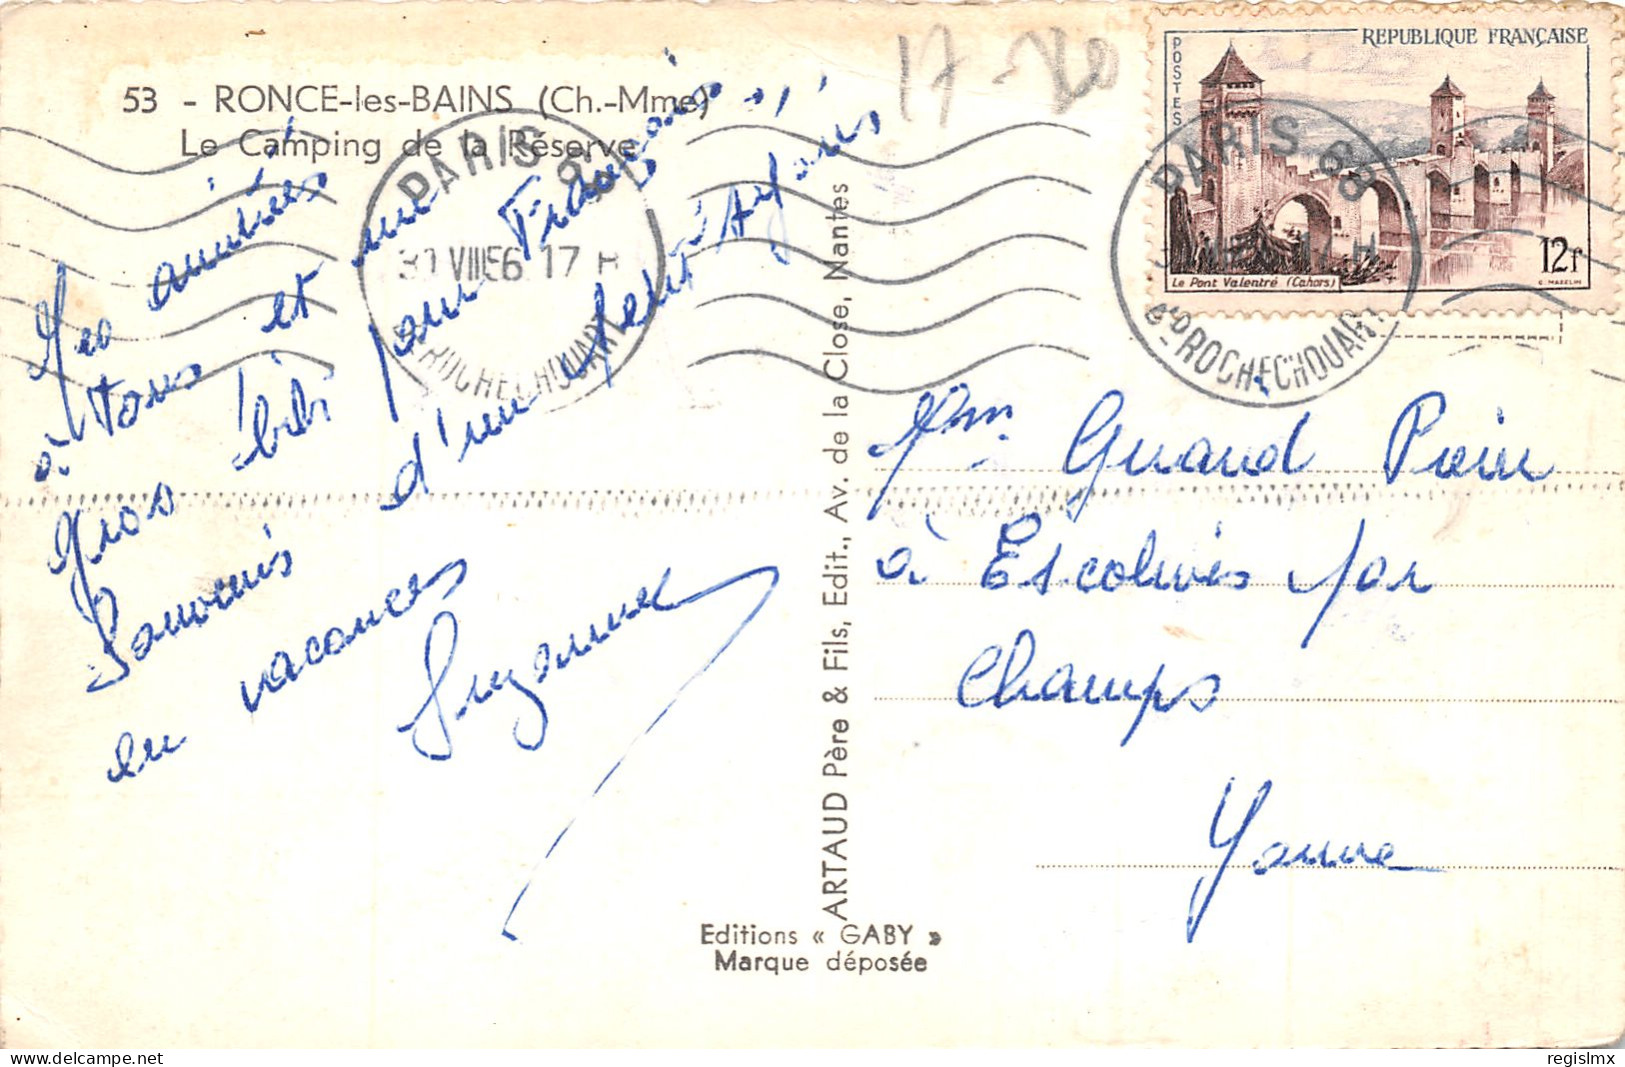 53 - RONCE-les-BAINS (Ch.-Mme)
Le Camping de la Réserve
17-
Mes amitiés
à tous et une
gros bibi pour François
Souvenirs d'un
en vacances
Suzanne
PARIS 68
VIII 56 17 H
ROCHECHOUART
REPUBLIQUE FRANÇAISE
POSTES
12f
Le Pont Valentré (Cahors)
C. MAZELIN
PARIS 68
Bd ROCHECHOUART
ARTAUD Père & Fils, Edit., Av. de la Close, Nantes
Mme Guard
à Escolives par
Champs
Yonne
Editions « GABY »
Marque déposée
regislmx